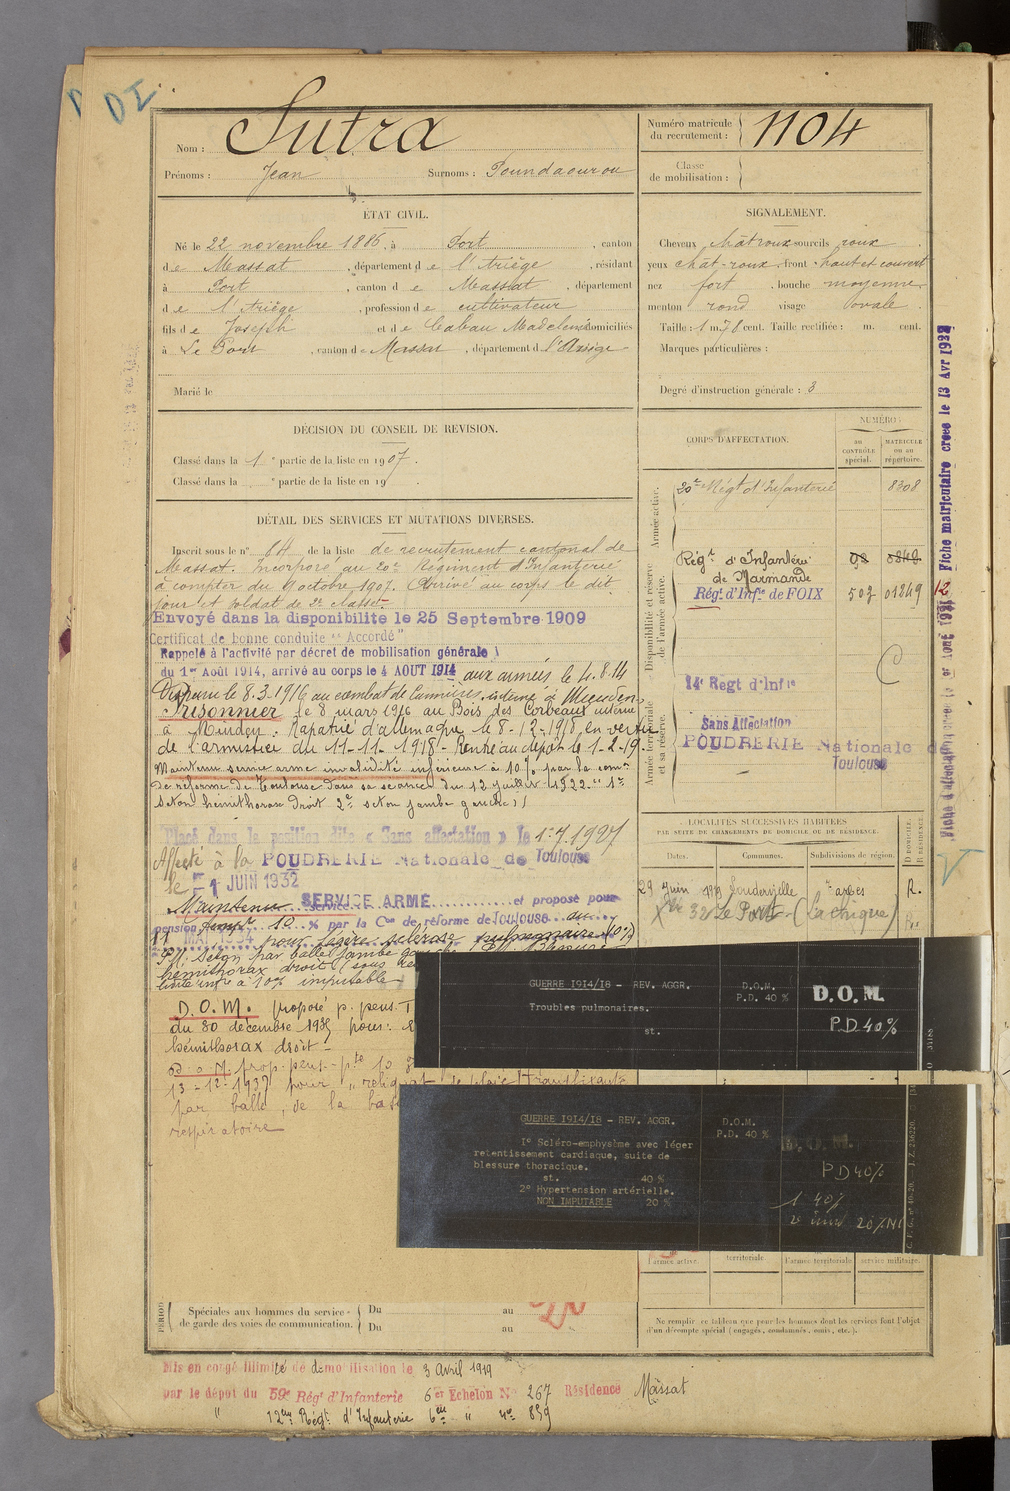 DI
Nom : Sutra
Prénoms : Jean Surnoms : Poundaourou
Numéro matricule du recrutement : 1104
Classe de mobilisation :
ÉTAT CIVIL.
Né le 22 novembre 1886, à Port, canton
de Massat, département de l'Ariège, résidant
à Port, canton de Massat, département
de l'Ariège, profession de cultivateur
fils de Joseph et de Cabau Madeleine domiciliés
à Le Port, canton de Massat, département d l'Ariège
Marié le
SIGNALEMENT.
Cheveux chât roux sourcils roux
yeux chât-roux front haut et couvert
nez fort, bouche moyenne
menton rond visage ovale.
Taille : 1 m. 78 cent. Taille rectifiée : m. cent.
Marques particulières :
Degré d'instruction générale : 3
DÉCISION DU CONSEIL DE REVISION.
Classé dans la 1e partie de la liste en 1907.
Classé dans la e partie de la liste en 19 .
DÉTAIL DES SERVICES ET MUTATIONS DIVERSES.
Inscrit sous le n° 84 de la liste de recrutement cantonal de
Massat. Incorporé au 20e Régiment d'Infanterie
à compter du 9 octobre 1907. Arrivé au corps le dit
jour et soldat de 2e classe.
Envoyé dans la disponibilité le 25 Septembre 1909
Certificat de bonne conduite "Accordé"
Rappelé à l'activité par décret de mobilisation générale
du 1er Août 1914, arrivé au corps le 4 AOUT 1914 aux armées le 4.8.14
Disparu le 8.3.1916 au combat de Cumières. interné à Munden
Prisonnier le 8 mars 1916 au Bois des Corbeaux interné
à Minden. Rapatrié d'Allemagne le 8-12-1918 en vertu
de l'armistice du 11-11-1918 - Rentré au dépôt le 1-2-19.
Maintenu service armé invalidité inférieure à 10 % par la comon
de réforme de Toulouse dans sa séance du 12 juillet 1922 "1°
séton hémithorax droit 2° séton jambe gauche"
Placé dans la position dite « Sans affectation » le 1-7 1927
Affecté à la POUDRERIE Nationale de Toulouse
le 1er JUIN 1932
Maintenu SERVICE ARMÉ et proposé pour
pension 10 % par la Con de réforme de Toulouse du
11 MAI 1934 pour légère sclérose pulmonaire
P.M. séton par balle jambe
hémithorax droit
infre à 10% imputable
D.O.M. proposé p. pens. T
du 30 décembre 1935 pour :
hémithorax droit -
D.O.M. prop. pens. pte
13-12-1937 pour "reliquat de plaie transfixiante
par balle, de la base
respiratoire
CORPS D'AFFECTATION.
NUMÉRO :
au CONTRÔLE spécial.
MATRICULE ou au répertoire.
Armée active.
20e Régt d'Infanterie 8308
Disponibilité et réserve de l'armée active.
Régt d'Infanterie de Marmande
Régt d'Infie de FOIX 503 01249
Armée territoriale et sa réserve.
14e Regt d'Infie
Sans Affectation
POUDRERIE Nationale de Toulouse
LOCALITÉS SUCCESSIVES HABITÉES
PAR SUITE DE CHANGEMENTS DE DOMICILE OU DE RÉSIDENCE.
Dates. Communes. Subdivisions de région. D DOMICILE. R RÉSIDENCE.
29 Juin Loudervielle Tarbes R.
32 Le Port (Lachique) R.
Fiche matriculaire créée le 13 Avr 1932
GUERRE 1914/18 - REV. AGGR.
Troubles pulmonaires.
st.
D.O.M.
P.D. 40 %
D.O.M.
P.D 40%
GUERRE 1914/18 - REV. AGGR.
1° Scléro-emphysème avec léger
retentissement cardiaque, suite de
blessure thoracique.
st. 40 %
2° Hypertension artérielle.
NON IMPUTABLE 20 %
D.O.M.
P.D. 40 %
D.O.M.
PD 40%
1 40%
20% NI
l'armée active. territoriale. l'armée territoriale service militaire.
PÉRIOD
Spéciales aux hommes du service de garde des voies de communication.
Du au
Du au
Ne remplir ce tableau que pour les hommes dont les services font l'objet
d'un décompte spécial (engagés, condamnés, omis, etc.).
Mis en congé illimité de démobilisation le 3 Avril 1919
par le dépot du 59e Régt d'Infanterie 6e Echelon N° 267 Résidence Massat
" 12me Régt d'Infanterie 6em " no 859